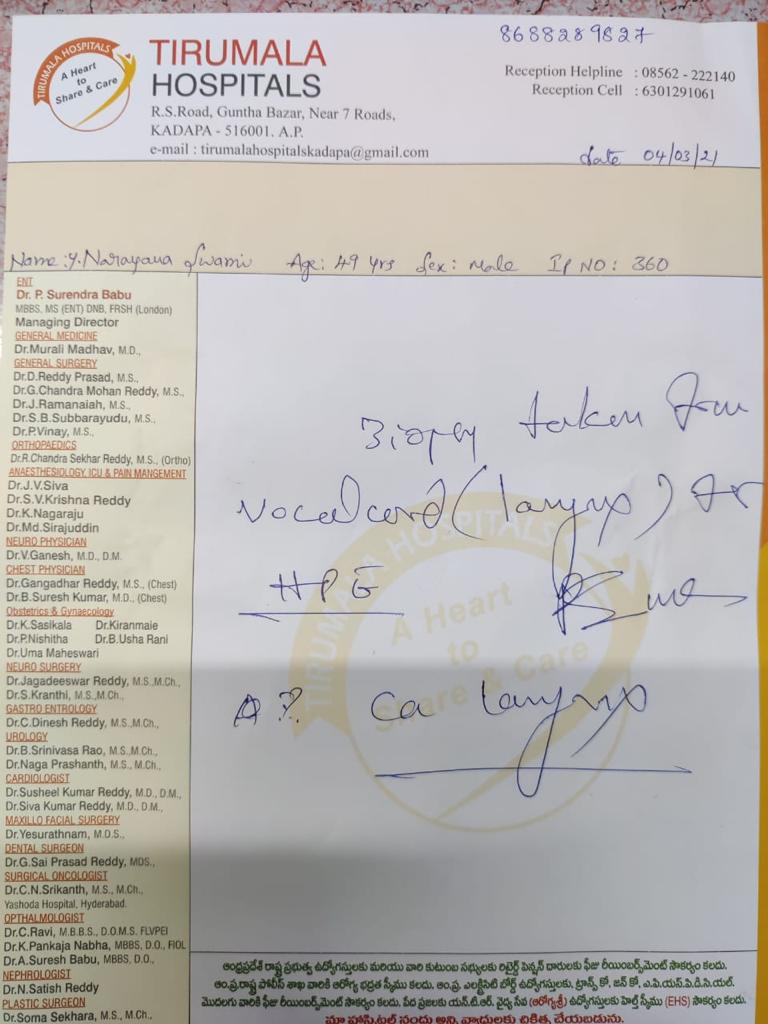 8688289827
TIRUMALA HOSPITALS
A Heart
to
Share & Care
TIRUMALA
HOSPITALS
R.S.Road, Guntha Bazar, Near 7 Roads,
KADAPA - 516001. A.P.
e-mail : tirumalahospitalskadapa@gmail.com
Reception Helpline : 08562 - 222140
Reception Cell : 6301291061
date 04/03/21
Name: Y. Narayana Swami Age: 49 yrs Sex: male IP NO: 360
ENT
Dr. P. Surendra Babu
MBBS, MS (ENT) DNB, FRSH (London)
Managing Director
GENERAL MEDICINE
Dr.Murali Madhav, M.D.,
GENERAL SURGERY
Dr.D.Reddy Prasad, M.S.,
Dr.G.Chandra Mohan Reddy, M.S.,
Dr.J.Ramanaiah, M.S.,
Dr.S.B.Subbarayudu, M.S.,
Dr.P.Vinay, M.S.,
ORTHOPAEDICS
Dr.R.Chandra Sekhar Reddy, M.S., (Ortho)
ANAESTHESIOLOGY, ICU & PAIN MANGEMENT
Dr.J.V.Siva
Dr.S.V.Krishna Reddy
Dr.K.Nagaraju
Dr.Md.Sirajuddin
NEURO PHYSICIAN
Dr.V.Ganesh, M.D., D.M.
CHEST PHYSICIAN
Dr.Gangadhar Reddy, M.S., (Chest)
Dr.B.Suresh Kumar, M.D., (Chest)
Obstetrics & Gynaecology
Dr.K.Sasikala Dr.Kiranmaie
Dr.P.Nishitha Dr.B.Usha Rani
Dr.Uma Maheswari
NEURO SURGERY
Dr.Jagadeeswar Reddy, M.S.,M.Ch.,
Dr.S.Kranthi, M.S.,M.Ch.,
GASTRO ENTROLOGY
Dr.C.Dinesh Reddy, M.S.,M.Ch.,
UROLOGY
Dr.B.Srinivasa Rao, M.S.,M.Ch.,
Dr.Naga Prashanth, M.S., M.Ch.,
CARDIOLOGIST
Dr.Susheel Kumar Reddy, M.D., D.M.,
Dr.Siva Kumar Reddy, M.D., D.M.,
MAXILLO FACIAL SURGERY
Dr.Yesurathnam, M.D.S.,
DENTAL SURGEON
Dr.G.Sai Prasad Reddy, MDS.,
SURGICAL ONCOLOGIST
Dr.C.N.Srikanth, M.S., M.Ch.,
Yashoda Hospital, Hyderabad.
OPTHALMOLOGIST
Dr.C.Ravi, M.B.B.S., D.O.M.S. FLVPEI
Dr.K.Pankaja Nabha, MBBS, D.O., FIOL
Dr.A.Suresh Babu, MBBS, D.O.,
NEPHROLOGIST
Dr.N.Satish Reddy
PLASTIC SURGEON
Dr.Soma Sekhara, M.S., M.Ch.,
Biopsy taken from
vocal cord (larynx) for
HPE
? Ca larynx
TIRUMALA HOSPITALS
A Heart
to
Share & Care
ఆంధ్రప్రదేశ్ రాష్ట్ర ప్రభుత్వ ఉద్యోగస్తులకు మరియు వారి కుటుంబ సభ్యులకు రిటైర్డ్ పెన్షన్ దారులకు ఫీజు రీయింబర్స్‌మెంట్ సౌకర్యం కలదు.
ఆం.ప్ర.రాష్ట్ర పోలీస్ శాఖ వారికి ఆరోగ్య భద్రత స్కీము కలదు. ఆం.ప్ర. ఎలక్ట్రిసిటీ బోర్డ్ ఉద్యోగస్తులకు, ట్రాన్స్ కో, జెన్ కో, ఎ.పి.యస్.పి.డి.సి.యల్.
మొదలగు వారికి ఫీజు రీయింబర్స్‌మెంట్ సౌకర్యం కలదు. పేద ప్రజలకు యన్.టి.ఆర్. వైద్య సేవ (ఆరోగ్యశ్రీ) ఉద్యోగస్తులకు హెల్త్ స్కీము (EHS) సౌకర్యం కలదు.
మా హాస్పిటల్ నందు అన్ని వ్యాధులకు చికిత్స చేయబడును.